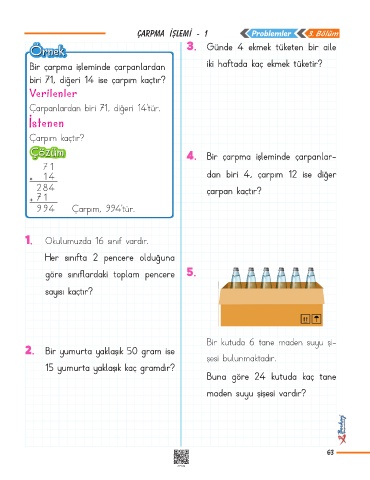 ÇARPMA İŞLEMİ - 1
Problemler
3. Bölüm
Örnek
Bir çarpma işleminde çarpanlardan
biri 71, diğeri 14 ise çarpım kaçtır?
Verilenler
Çarpanlardan biri 71, diğeri 14'tür.
İstenen
Çarpım kaçtır?
Çözüm
71
x 14
284
+ 71
994 Çarpım, 994'tür.
1. Okulumuzda 16 sınıf vardır.
Her sınıfta 2 pencere olduğuna
göre sınıflardaki toplam pencere
sayısı kaçtır?
2. Bir yumurta yaklaşık 50 gram ise
15 yumurta yaklaşık kaç gramdır?
3. Günde 4 ekmek tüketen bir aile
iki haftada kaç ekmek tüketir?
4. Bir çarpma işleminde çarpanlar-
dan biri 4, çarpım 12 ise diğer
çarpan kaçtır?
5.
Bir kutuda 6 tane maden suyu şi-
şesi bulunmaktadır.
Buna göre 24 kutuda kaç tane
maden suyu şişesi vardır?
63